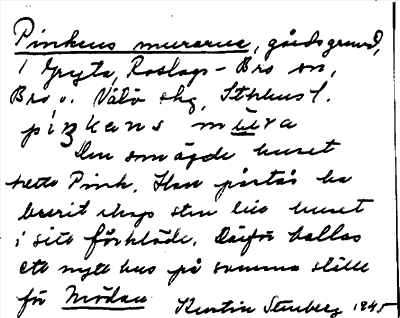 Pinkens murarna, gårdsgrund,
i Gryta, Roslags-Bro sn,
Bro o. Vätö skg, Sthlms l.
piŋkens mūra
Den som ägde huset
hette Pink. Han påstås ha
burit ihop sten till huset
i sitt förkläde. Därför kallas
ett nytt hus på samma ställe
för Mödan Kerstin Stenberg 1945